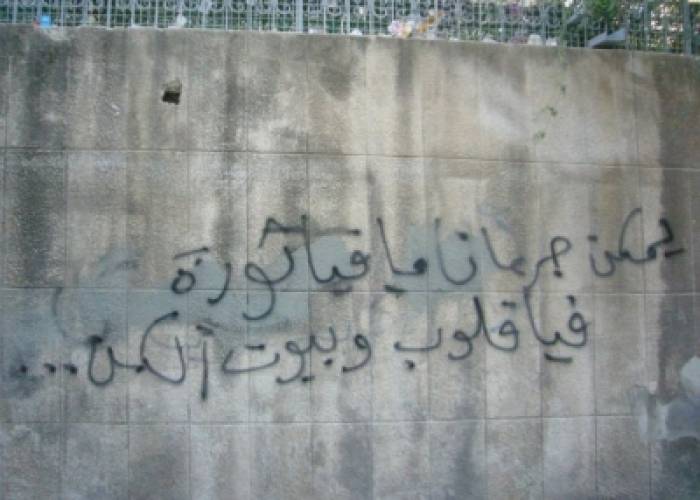 يمكن جرمانا ما فيا ثورة
فيا قلوب وبيوت ألكن...